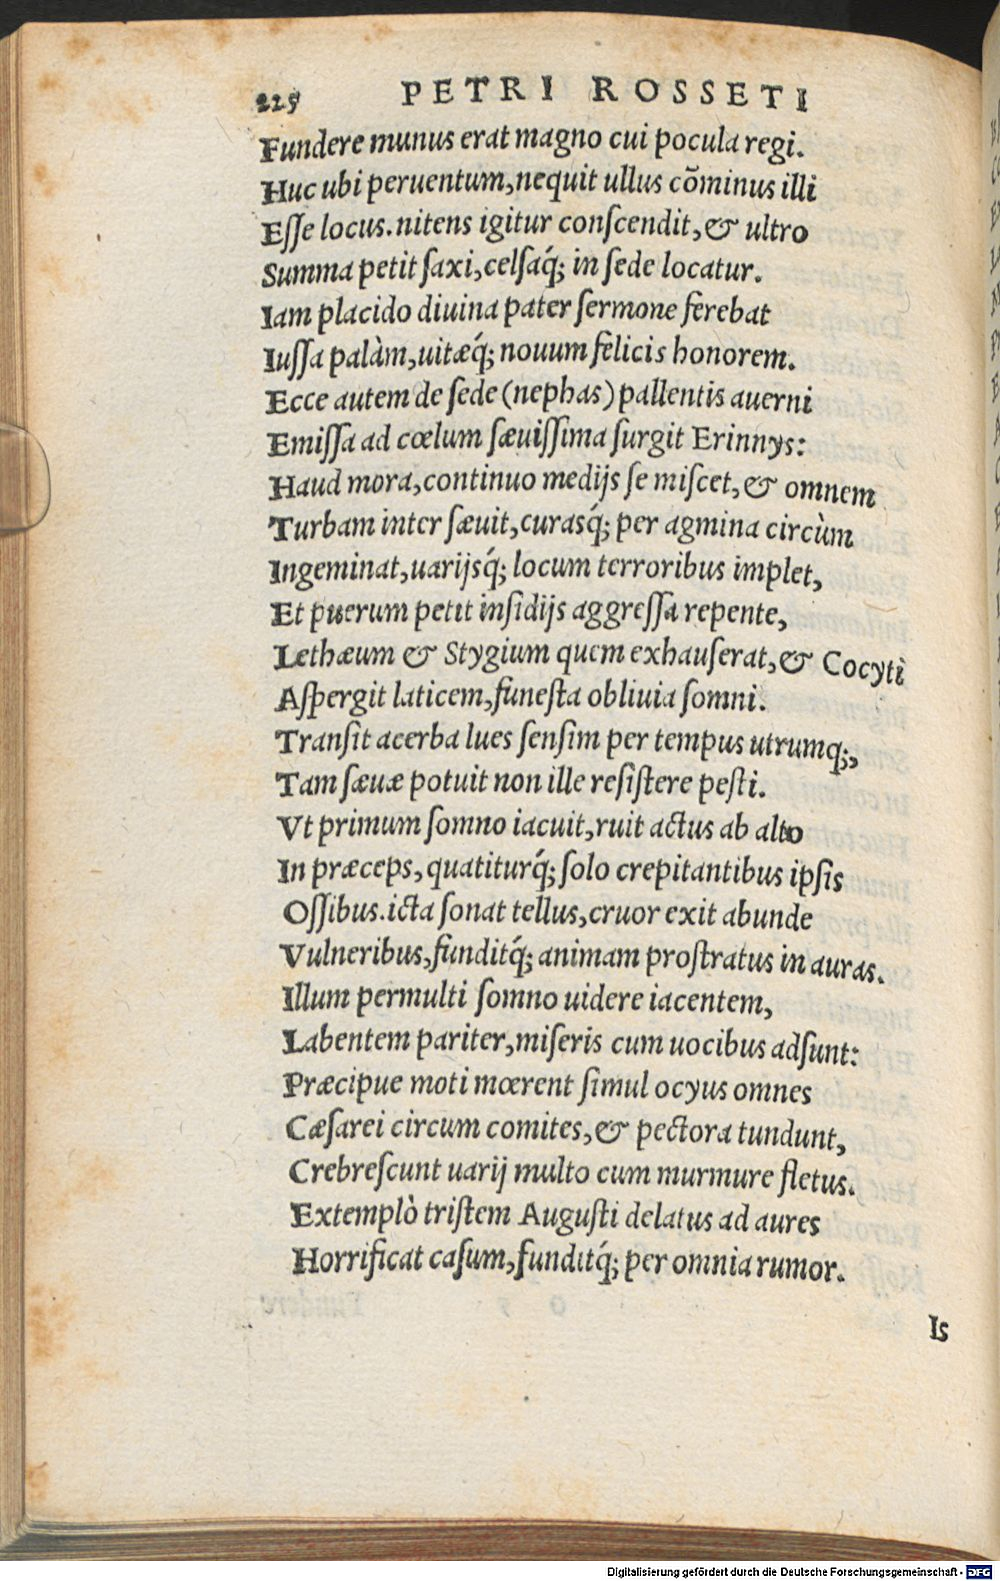 225 PETRI ROSSETI
Fundere munus erat magno cui pocula regi.
Huc ubi peruentum, nequit ullus cōminus illi
Eſſe locus. nitens igitur conſcendit, & ultro
Summa petit ſaxi, celſaq́; in ſede locatur.
Iam placido diuina pater ſermone ferebat
Iuſſa palàm, uitæq́; nouum felicis honorem.
Ecce autem de ſede (nephas) pallentis auerni
Emiſſa ad cœlum ſæuiſſima ſurgit Erinnys:
Haud mora, continuo medijs ſe miſcet, & omnem
Turbam inter ſæuit, curasq́; per agmina circùm
Ingeminat, uarijsq́; locum terroribus implet,
Et puerum petit inſidijs aggreſſa repente,
Lethæum & Stygium quem exhauſerat, & Cocyti
Aſpergit laticem, funeſta obliuia ſomni.
Tranſit acerba lues ſenſim per tempus utrumq;,
Tam ſæuæ potuit non ille reſiſtere peſti.
Vt primum ſomno iacuit, ruit actus ab alto
In præceps, quatiturq́; ſolo crepitantibus ipſis
Oſſibus. icta ſonat tellus, cruor exit abunde
Vulneribus, funditq́; animam proſtratus in auras.
Illum permulti ſomno uidere iacentem,
Labentem pariter, miſeris cum uocibus adſunt:
Præcipue moti mœrent ſimul ocyus omnes
Cæſarei circum comites, & pectora tundunt,
Crebreſcunt uarij multo cum murmure fletus.
Extemplò triſtem Auguſti delatus ad aures
Horrificat caſum, funditq́; per omnia rumor.
Is
Digitalisierung gefördert durch die Deutsche Forschungsgemeinschaft - DFG